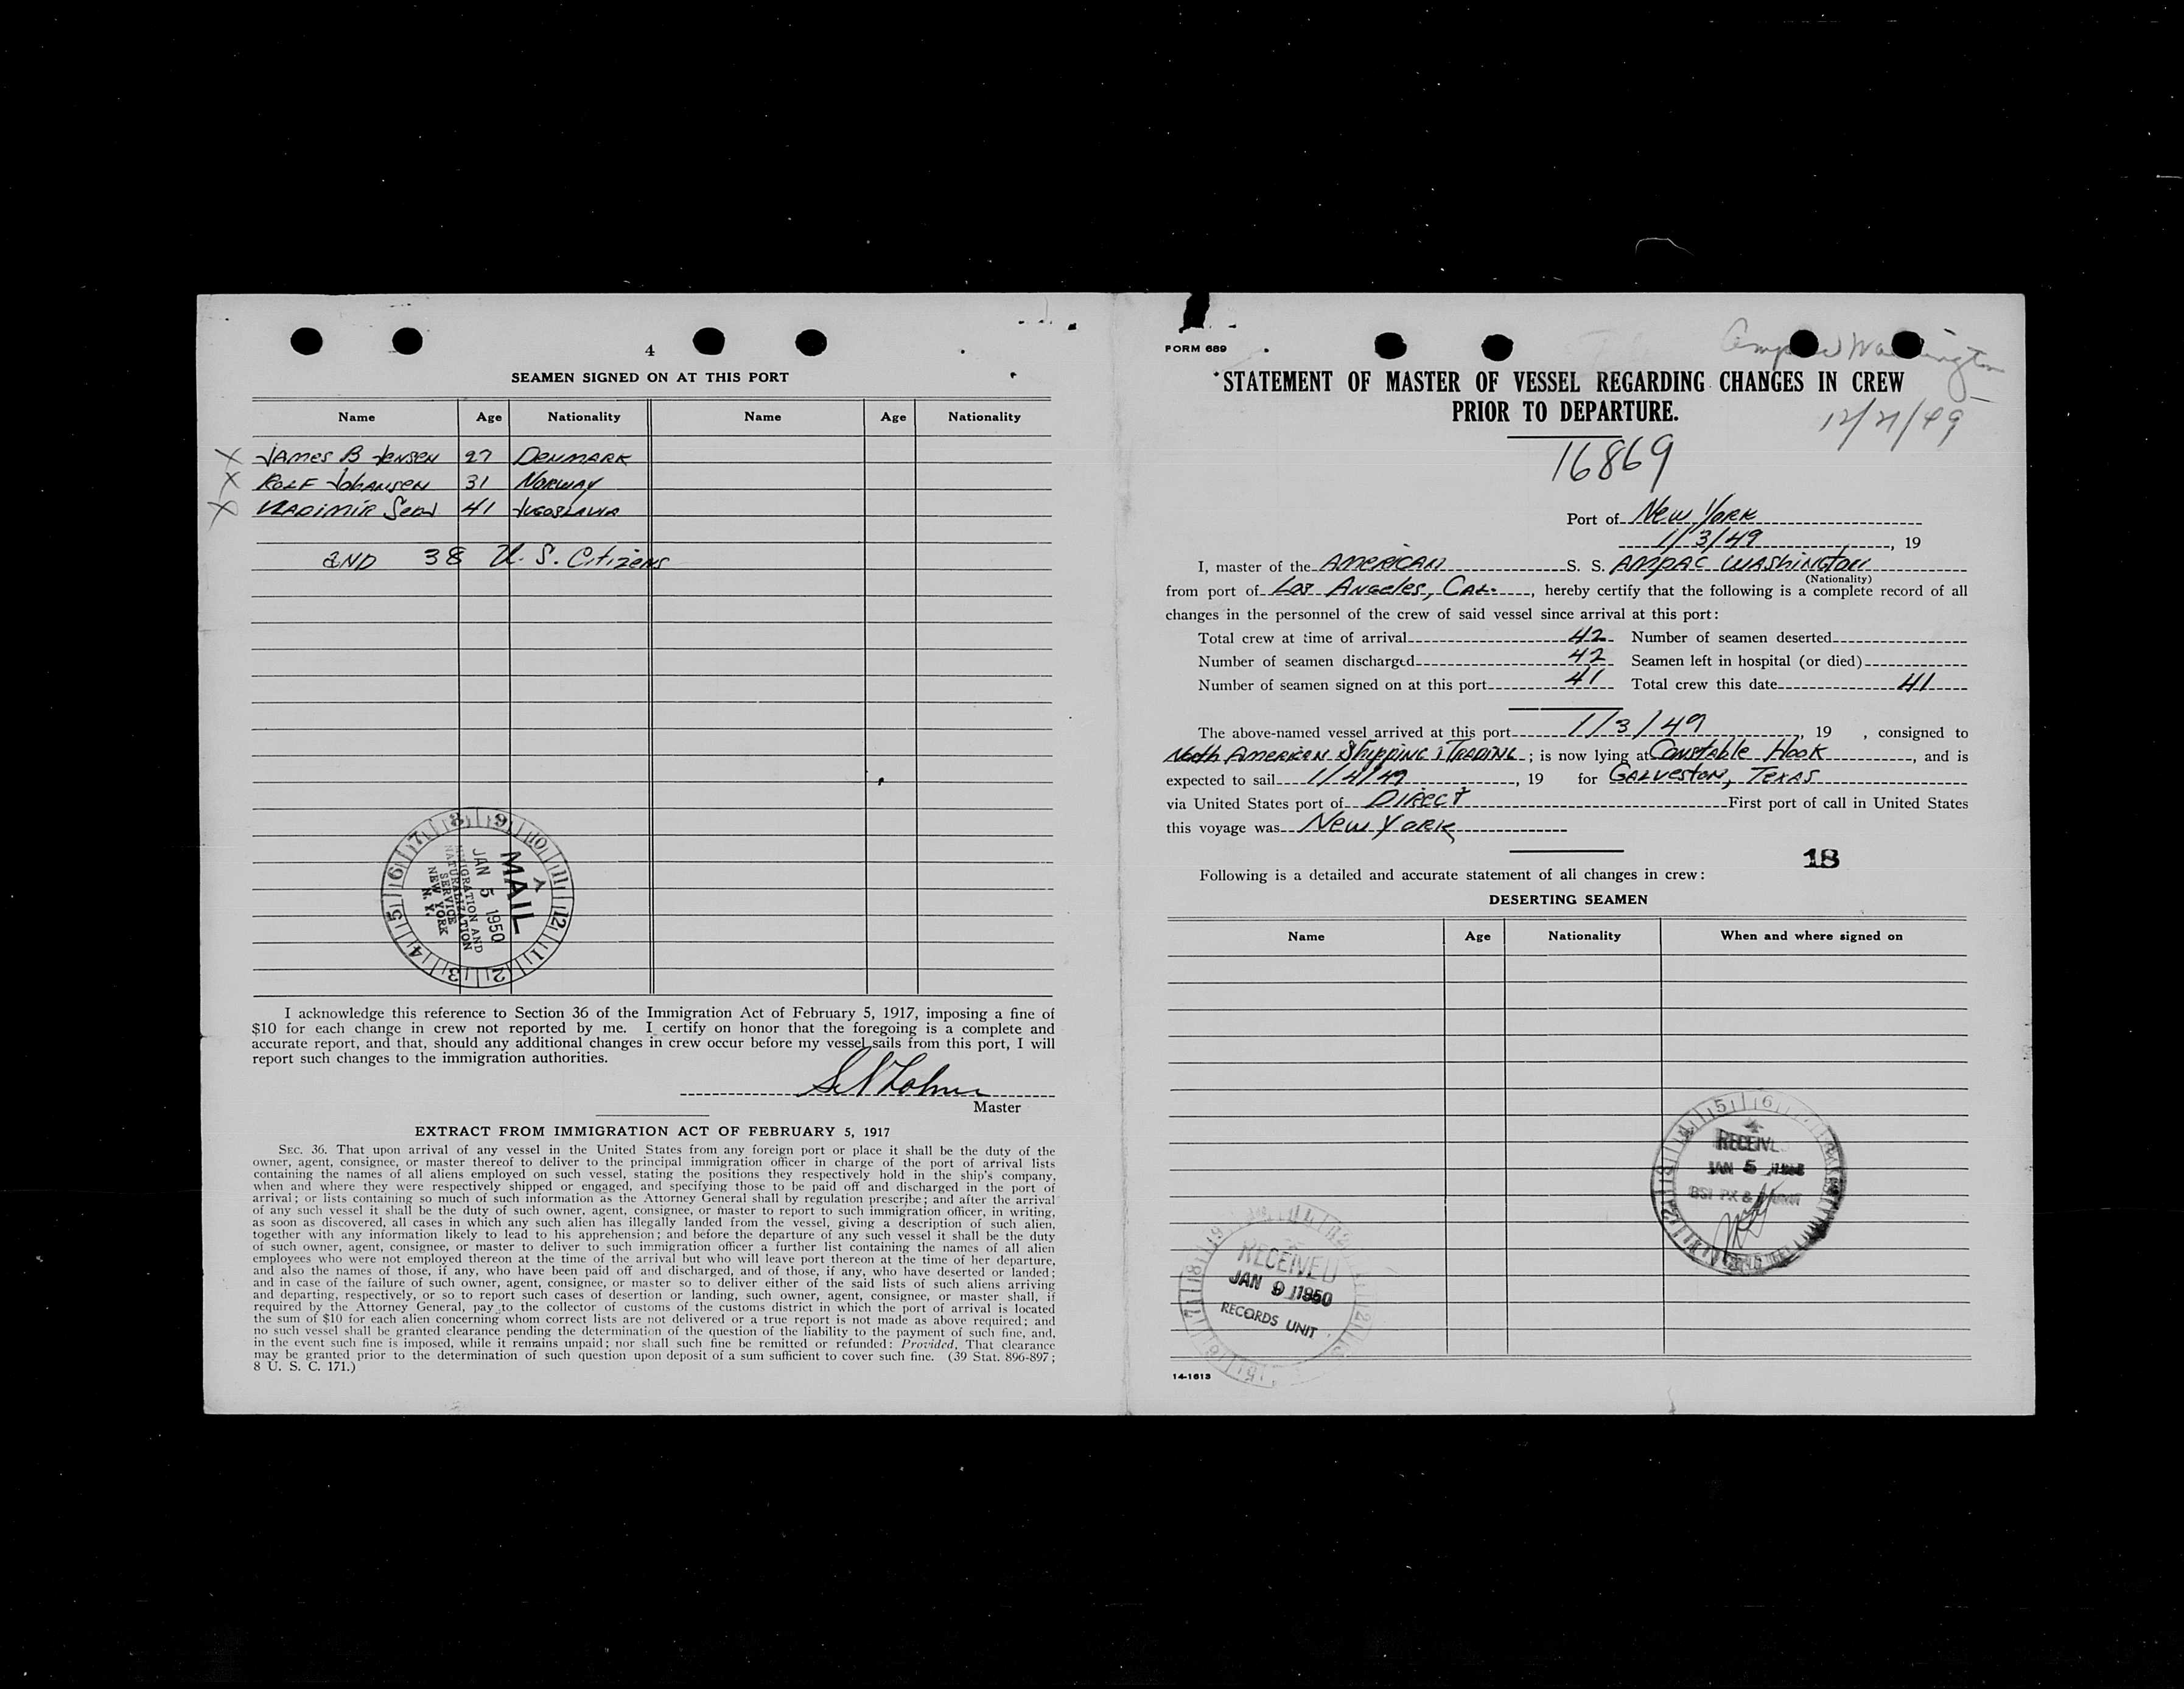 4
SEAMEN SIGNED ON AT THIS PORT
Name Age Nationality Name Age Nationality
X JAMES B JENSEN 27 DENMARK
X ROLF JOHANSEN 31 NORWAY
X VLADIMIR 41 YUGOSLAVIA
AND 38 U. S. Citizens
MAIL
JAN 5 1950
IMMIGRATION AND
NATURALIZATION
SERVICE
NEW YORK
N. Y.
I acknowledge this reference to Section 36 of the Immigration Act of February 5, 1917, imposing a fine of
$10 for each change in crew not reported by me. I certify on honor that the foregoing is a complete and
accurate report, and that, should any additional changes in crew occur before my vessel sails from this port, I will
report such changes to the immigration authorities.
Master
EXTRACT FROM IMMIGRATION ACT OF FEBRUARY 5, 1917
SEC. 36. That upon arrival of any vessel in the United States from any foreign port or place it shall be the duty of the
owner, agent, consignee, or master thereof to deliver to the principal immigration officer in charge of the port of arrival lists
containing the names of all aliens employed on such vessel, stating the positions they respectively hold in the ship's company,
when and where they were respectively shipped or engaged, and specifying those to be paid off and discharged in the port of
arrival; or lists containing so much of such information as the Attorney General shall by regulation prescribe; and after the arrival
of any such vessel it shall be the duty of such owner, agent, consignee, or master to report to such immigration officer, in writing,
as soon as discovered, all cases in which any such alien has illegally landed from the vessel, giving a description of such alien,
together with any information likely to lead to his apprehension; and before the departure of any such vessel it shall be the duty
of such owner, agent, consignee, or master to deliver to such immigration officer a further list containing the names of all alien
employees who were not employed thereon at the time of the arrival but who will leave port thereon at the time of her departure,
and also the names of those, if any, who have been paid off and discharged, and of those, if any, who have deserted or landed;
and in case of the failure of such owner, agent, consignee, or master so to deliver either of the said lists of such aliens arriving
and departing, respectively, or so to report such cases of desertion or landing, such owner, agent, consignee, or master shall, if
required by the Attorney General, pay to the collector of customs of the customs district in which the port of arrival is located
the sum of $10 for each alien concerning whom correct lists are not delivered or a true report is not made as above required; and
no such vessel shall be granted clearance pending the determination of the question of the liability to the payment of such fine, and,
in the event such fine is imposed, while it remains unpaid; nor shall such fine be remitted or refunded: Provided, That clearance
may be granted prior to the determination of such question upon deposit of a sum sufficient to cover such fine. (39 Stat. 896-897;
8 U. S. C. 171.)
FORM 689
Washington
STATEMENT OF MASTER OF VESSEL REGARDING CHANGES IN CREW
PRIOR TO DEPARTURE.
12/21/49
16869
Port of New York
1/3/49, 19
I, master of the AMERICAN S. S. AMPAC WASHINGTON
(Nationality)
from port of Los Angeles, CAL., hereby certify that the following is a complete record of all
changes in the personnel of the crew of said vessel since arrival at this port:
Total crew at time of arrival 42 Number of seamen deserted
Number of seamen discharged 42 Seamen left in hospital (or died)
Number of seamen signed on at this port 41 Total crew this date 41
The above-named vessel arrived at this port 1/3/49, 19 , consigned to
North American Shipping & Trading; is now lying at Constable Hook, and is
expected to sail 1/4/49, 19 for GALVESTON, TEXAS
via United States port of Direct First port of call in United States
this voyage was New York
18
Following is a detailed and accurate statement of all changes in crew:
DESERTING SEAMEN
Name Age Nationality When and where signed on
RECEIVED
JAN 5
RECEIVED
JAN 9 1950
RECORDS UNIT
14-1613